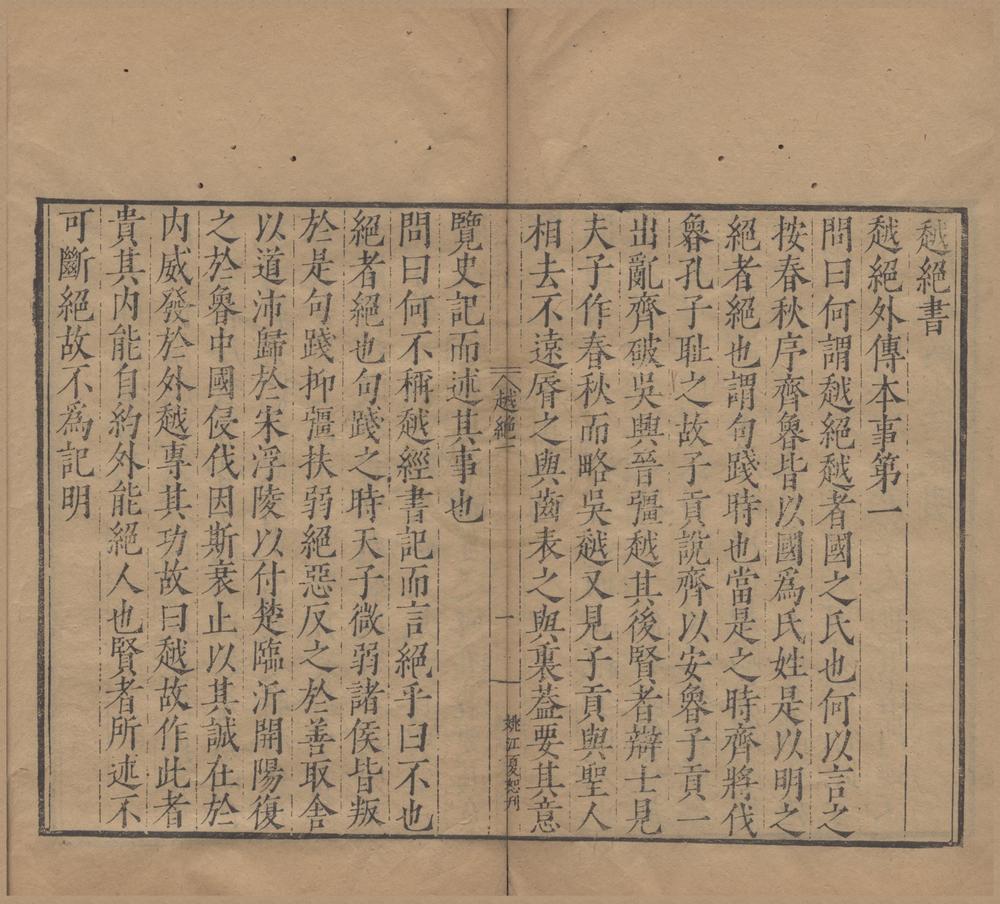 越絕書
越絕外傳本事第一
問曰何謂越絕越者國之氏也何以言之
按春秋序齊魯皆以國爲氏姓是以明之
絕者絕也謂句踐時也當是之時齊將伐
魯孔子恥之故子貢說齊以安魯子貢一
出亂齊破吳興晉彊越其後賢者辯士見
夫子作春秋而略吳越又見子貢與聖人
相去不遠脣之與齒表之與裏蓋要其意
越絕一
一
姚江夏恕刋
覽史記而述其事也
問曰何不稱越經書記而言絕乎曰不也
絕者絕也句踐之時天子微弱諸侯皆叛
於是句踐抑彊扶弱絕惡反之於善取舍
以道沛歸於宋浮陵以付楚臨沂開陽復
之於魯中國侵伐因斯衰止以其誠在於
內威發於外越專其功故曰越故作此者
貴其內能自約外能絕人也賢者所述不
可斷絕故不為記明